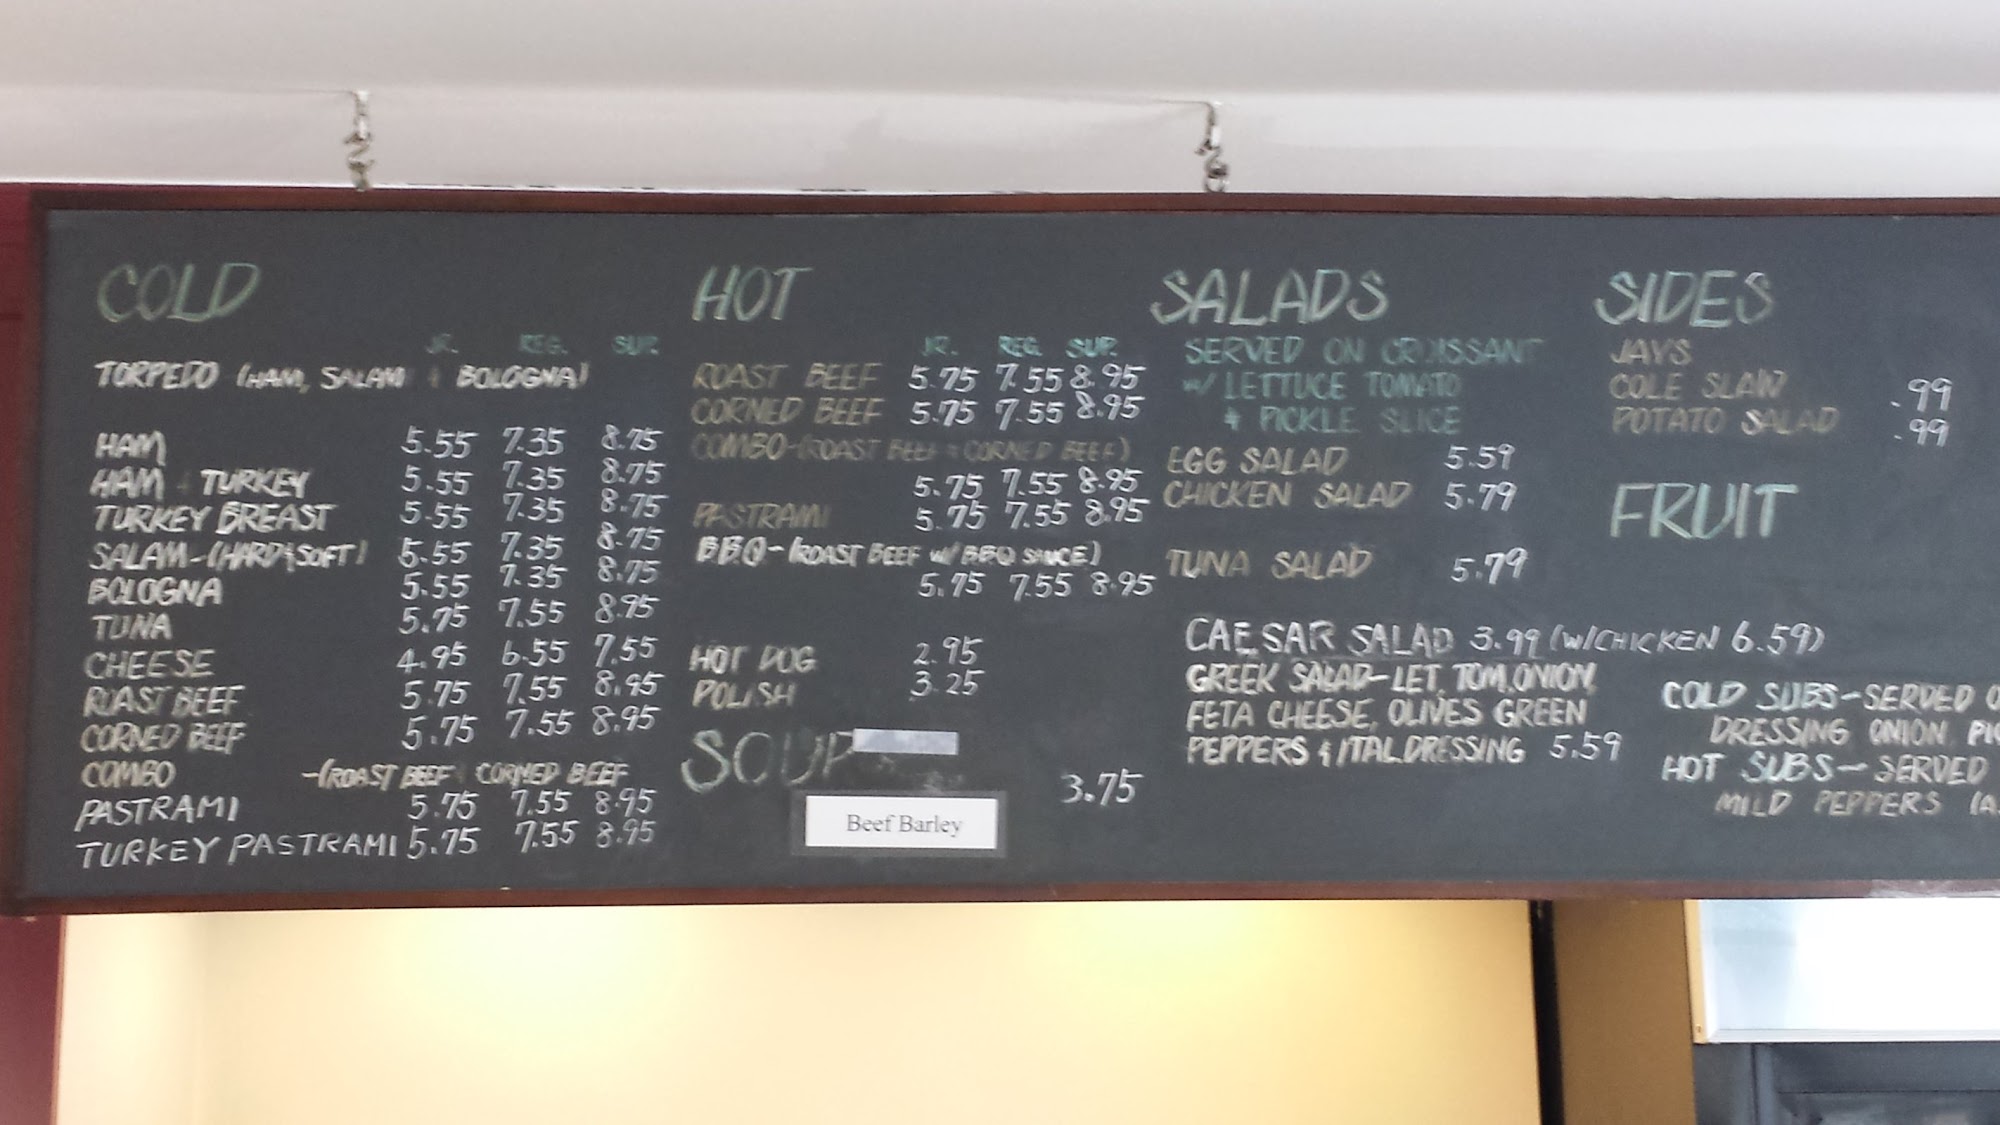 COLD
JR. REG. SUP.
TORPEDO (HAM, SALAMI & BOLOGNA)
HAM 5.55 7.35 8.75
HAM & TURKEY 5.55 7.35 8.75
TURKEY BREAST 5.55 7.35 8.75
SALAM-(HARD & SOFT) 5.55 7.35 8.75
BOLOGNA 5.55 7.35 8.75
TUNA 5.75 7.55 8.95
CHEESE 4.95 6.55 7.55
ROAST BEEF 5.75 7.55 8.95
CORNED BEEF 5.75 7.55 8.95
COMBO -(ROAST BEEF & CORNED BEEF
PASTRAMI 5.75 7.55 8.95
TURKEY PASTRAMI 5.75 7.55 8.95
HOT
JR. REG. SUP.
ROAST BEEF 5.75 7.55 8.95
CORNED BEEF 5.75 7.55 8.95
COMBO-(ROAST BEEF & CORNED BEEF)
5.75 7.55 8.95
PASTRAMI 5.75 7.55 8.95
B.B.Q-(ROAST BEEF W/ BBQ SAUCE)
5.75 7.55 8.95
HOT DOG 2.95
POLISH 3.25
SOUP
3.75
Beef Barley
SALADS
SERVED ON CROISSANT
W/ LETTUCE TOMATO
& PICKLE SLICE
EGG SALAD 5.59
CHICKEN SALAD 5.79
TUNA SALAD 5.79
CAESAR SALAD 3.99 (W/CHICKEN 6.59)
GREEK SALAD-LET, TOM, ONION,
FETA CHEESE, OLIVES GREEN
PEPPERS & ITAL.DRESSING 5.59
SIDES
JAYS
COLE SLAW .99
POTATO SALAD .99
FRUIT
COLD SUBS-SERVED O
DRESSING ONION, PIC
HOT SUBS-SERVED
MILD PEPPERS (A